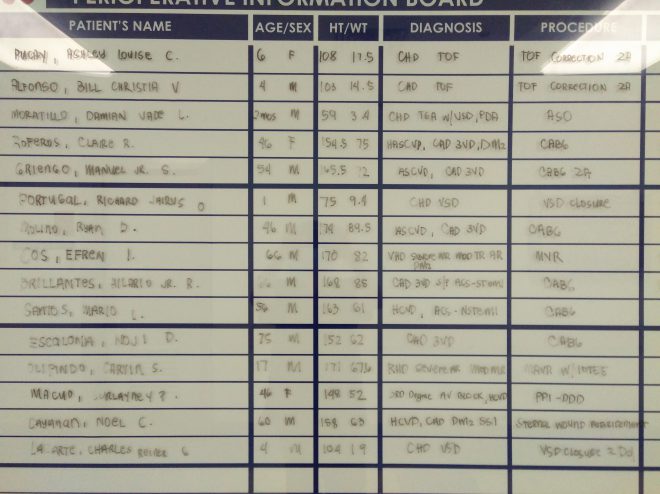 PERIOPERATIVE INFORMATION BOARD
PATIENT'S NAME AGE/SEX HT/WT DIAGNOSIS PROCEDURE
ASHLEY LOUISE C. 6 F 108 17.5 CHD TOF TOF CORRECTION 2A
ALFONSO, BILL CHRISTIA V 4 M 103 14.5 CHD TOF TOF CORRECTION 2A
MORATILLO, DAMIAN JADE L. 2mos M 59 3.4 CHD TGA W/VSD, PDA ASO
ROFEROS, CLAIRE R. 46 F 154.5 75 HASCVD, CAD 3VD, DM2 CABG
GRIENGO, MANUEL JR. S. 54 M 165.5 72 ASCVD, CAD 3VD CABG 2A
PORTUGAL, RICHARD JAIRUS O 1 M 75 9.4 CHD VSD VSD CLOSURE
MOLINO, RYAN D. 46 M 174 89.5 ASCVD, CAD 3VD CABG
COS, EFREN I. 66 M 170 82 VHD SEVERE MR MOD TR AR MVR
DM2
BRILLANTES, HILARIO JR. R. M 168 88 CAD 3VD S/P ACS-STEMI CABG
SANTOS, MARIO L. 56 M 163 61 HCVD, ACS-NSTEMI CABG
ESCOLONIA, NOJI D. 75 M 152 62 CAD 3VD CABG
CARVIN S. 17 M 171 RHD SEVERE MR MOD
MACUD, 46 F 148 52 3RD Degree AV BLOCK, HCVD PPI-DDD
CAYANAN, NOEL C. 60 M 158 63 HCVD, CAD DM2 SSI STERNAL WOUND DEBRIDEMENT
CHARLES 4 M 104 19 CHD VSD VSD CLOSURE